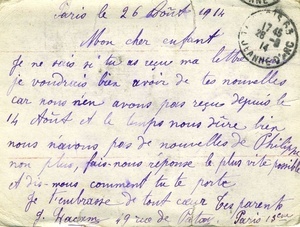 Paris le 26 Août 1914
Mon cher enfant
Je ne sais si tu as reçu ma lettre
je voudrais bien avoir de tes nouvelles
car nous n'en avons pas reçu depuis le
14 Août et le temps nous dure bien
nous n'avons pas de nouvelles de Philippe
non plus, fais-nous réponse le plus vite possible
et dis-nous comment tu te porte
Je t'embrasse de tout cœur tes parents
19 rue de Patay Paris 13ème